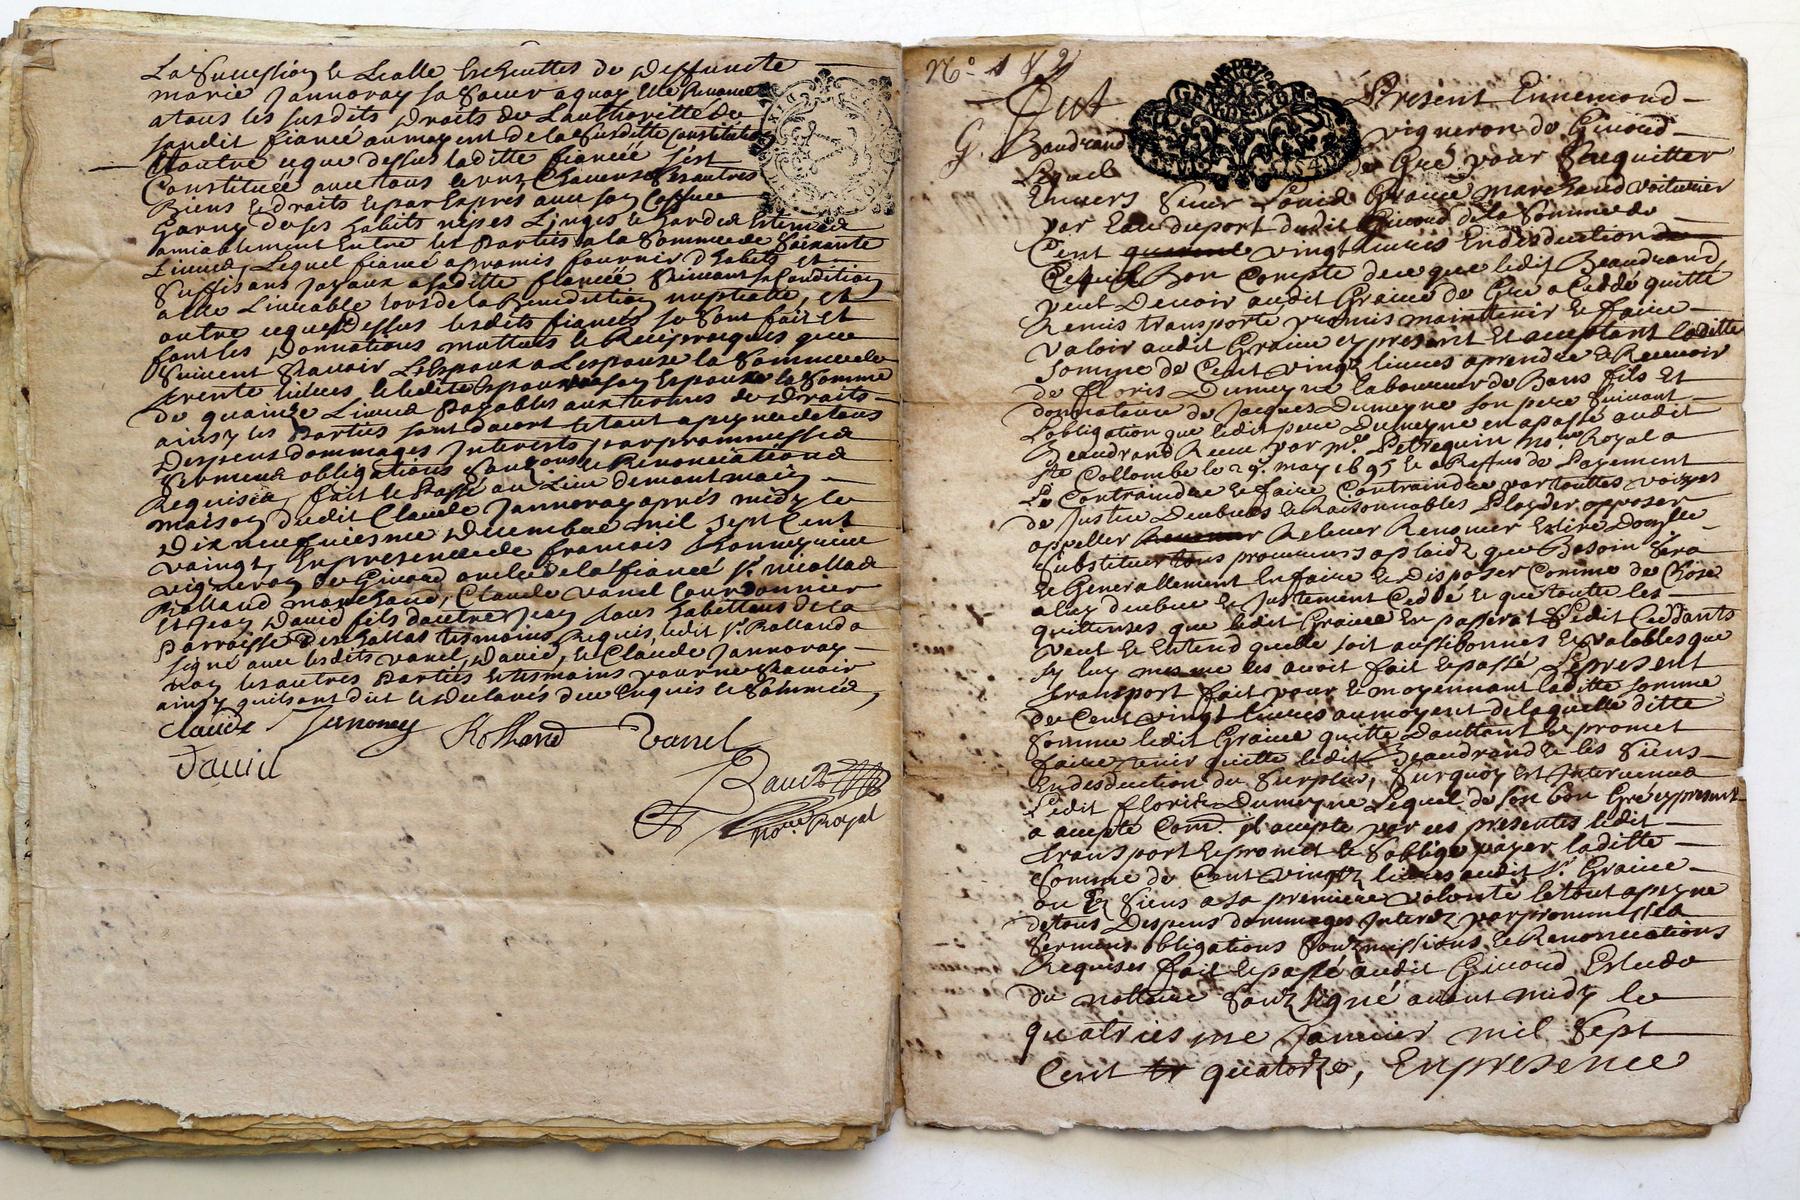 La Succession le Lealle Escheuttes de Deffuncte
marie Jannoray sa Saeur aquoy Elle Renonce
atous les susdits droits de Lauthoritté du
susdit fiancé au moyent de la Susditte Constitution
Et outre ceque dessus laditte fianceé s'est
Constituéé avec tous les autres
Biens et droits et par Expres avec son Coffre
Garny de ses habits nipes Linges et hardes Estimés
amiablement Entre les Parties a la Somme de Soixante
Livres, Lequel fiancé apromis fournir d'habits et
Suffisans Joyaux a saditte fiancéé Suivant sa Condition
alle Livrable lors de la Benediction nuptialle, et
outre ceque dessus lesdits fiancés se sont fait et
font les Donnations mutuels et Reciproques que
Suivent scavoir L'Espoux a L'espouse la Somme de
trente livres et laditte Espouse a son Espoux la Somme
de quainze Livres Payables aux termes de Droits
ainsy les Parties sont dacort le tout a peyne de tous
Despens dommages Interests par prommesses
Serments obligations et Renonciations
Requises, fait et Passé au Lieu de
maison dudit Claude Jannoray après midy le
Dixneufviesme Decembre mil sept Cent
vaingt, En presence de francois Bonneyeune
vigneron de Givord oncle de la fiancé Sr. nicollas
Rolland marchand, Claude vanel Courdonnier
Et Jean David fils dautre Jean tous habittans de la
Parroisse tesmoins Requis, ledit Sr. Rolland a
signé avec lesdits vanel, David, et Claude Jannoray
non les autres Parties et tesmoins pour ne scavoir
ainsy quils ont dit et declarés de ce Enquis et Sommés,
claude Janoray Rolland Vanel
Daviд
Baud
nore. Royal
No. 142
Present Ennemond
Baudrand vigneron de Givord
Lequel de Gré pour Sacquitter
Envers Sieur Louis Graine marchand voiturier
par Eau du port dudit Givord de la Somme de
Cent vingt livres En desduction
Bon Compte de ce que ledit Beaudrand,
peut Devoir audit Graine de Gré a Ceddé quitté
Remis transporté promis maintenir et faire
valoir audit Graine cy present Et aceptant laditte
somme de Cent vingt livres aprendre et Recevoir
de floris Dumeyne laboureur de Bans fils Et
donnataire de Jacques Dumeyne son pere suivant
l'obligation que ledit pere Dumeyne en a passé audit
Beaudrand Receu par me. Petrequin nore Royal a
Ste Collombe le 29e. may 1695 et a Reffus de Payement
Le Contraindre et faire Contraindre par touttes voÿes
de Justice Deubües et Raisonnables Playder opposer
appeller Relever Renoncer Eslire Domlle
Substituer tous procureurs aplaids que Besoin Sera
et Generallement En faire et Disposer Comme de Chose
aluy deubue et Justement Ceddé et que toute les
quittences que ledit Graine En passera Ledit Ceddants
veut et Entend quelle soit aussi bonnes et valables que
sy luy mesme les avoit fait et passé, Le present
transport fait pour et moyennant laditte somme
de Cent vingt livres au moyent de laquelle ditte
somme ledit Graine quitte Dauttant et promet
faire tenir quitte ledit Beaudrand et les Siens
En desduction du Surplus, Surquoy est Intervenus
Ledit floris Dumeyne Lequel de son bon Gré cy present
a acepté Com. il acepte par ces presentes ledit
transport et promet et S'oblige payer laditte
Somme de Cent vingtz livres audit Sr. Graine
ou Es Siens a sa premiere volonté le tout a peyne
de tous Despens dommages Interetz par prommesses
Serments obligations soubzmissions et Renonciations
Requises fait et passé audit Givord Estude
du nottaire soubzsigné avant midy le
quatriesme Janvier mil Sept
Cent quatorze, En presence